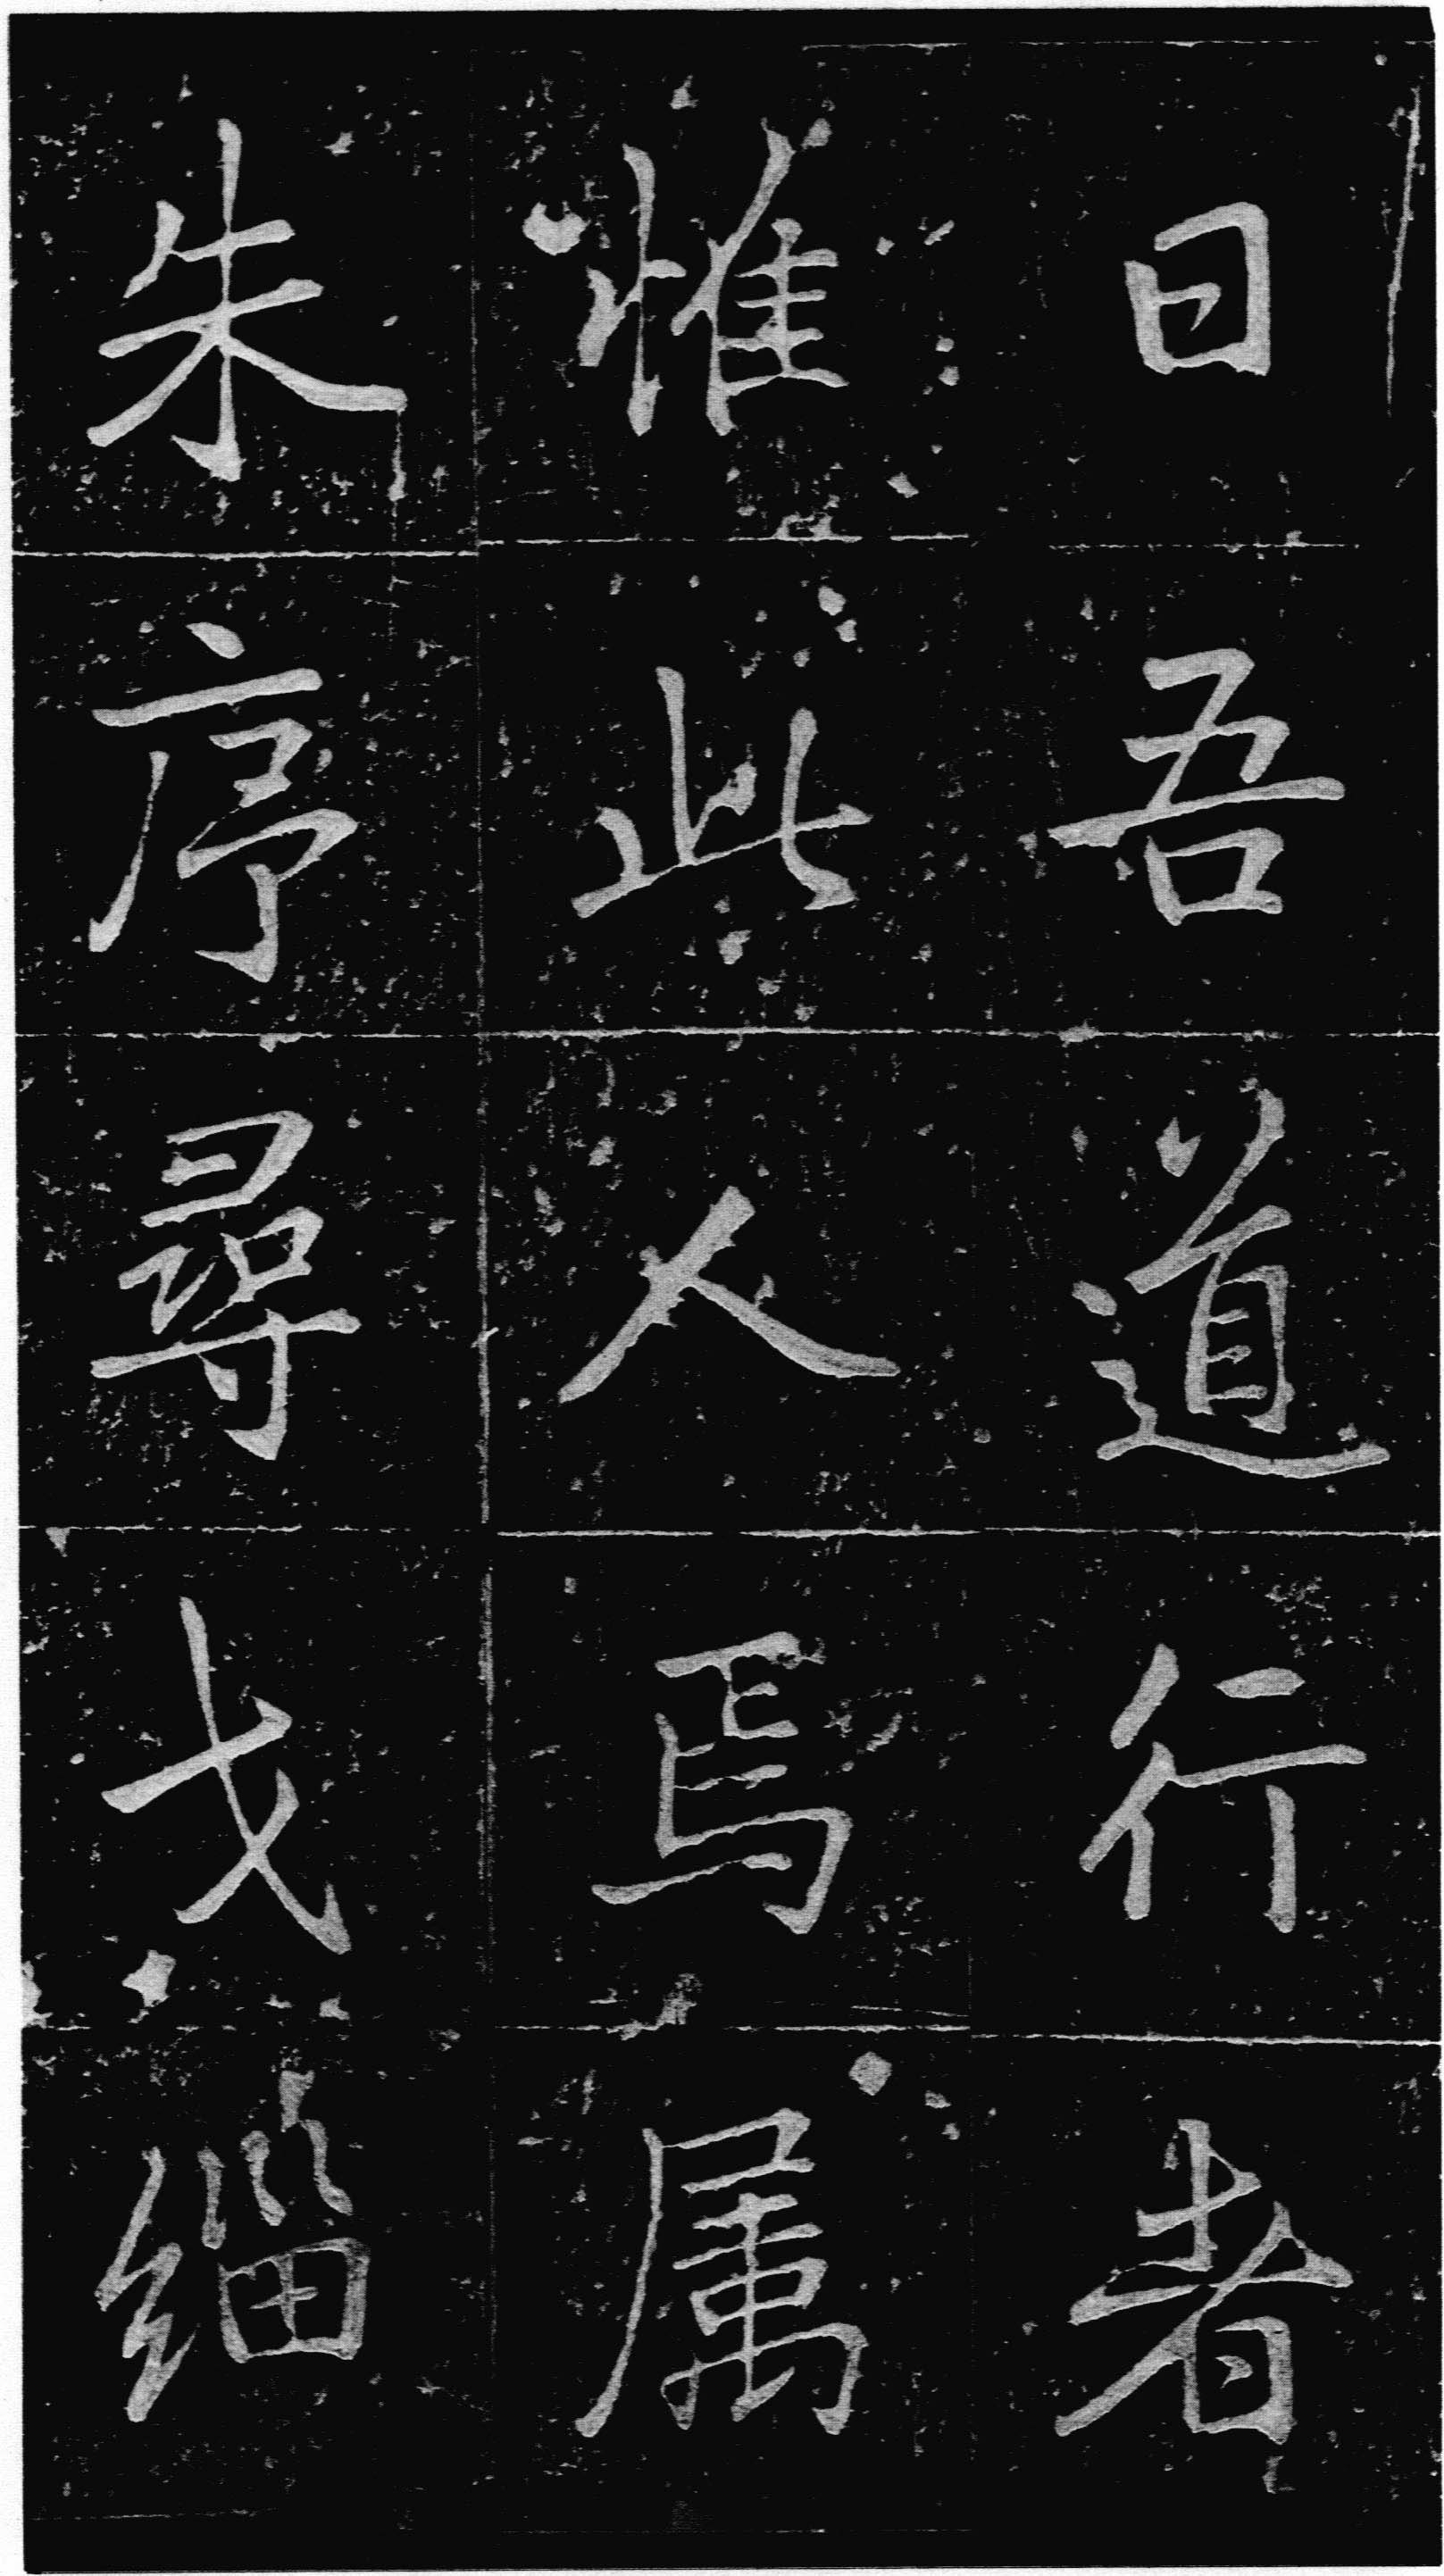 曰吾道行者
惟此人焉属
朱序尋戈緇